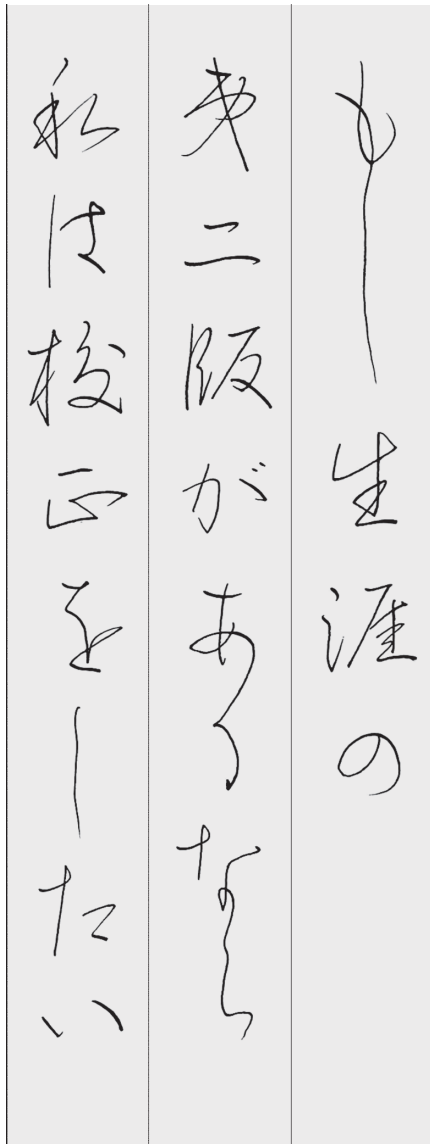 もし生涯の
第二版があるなら
私は校正をしたい